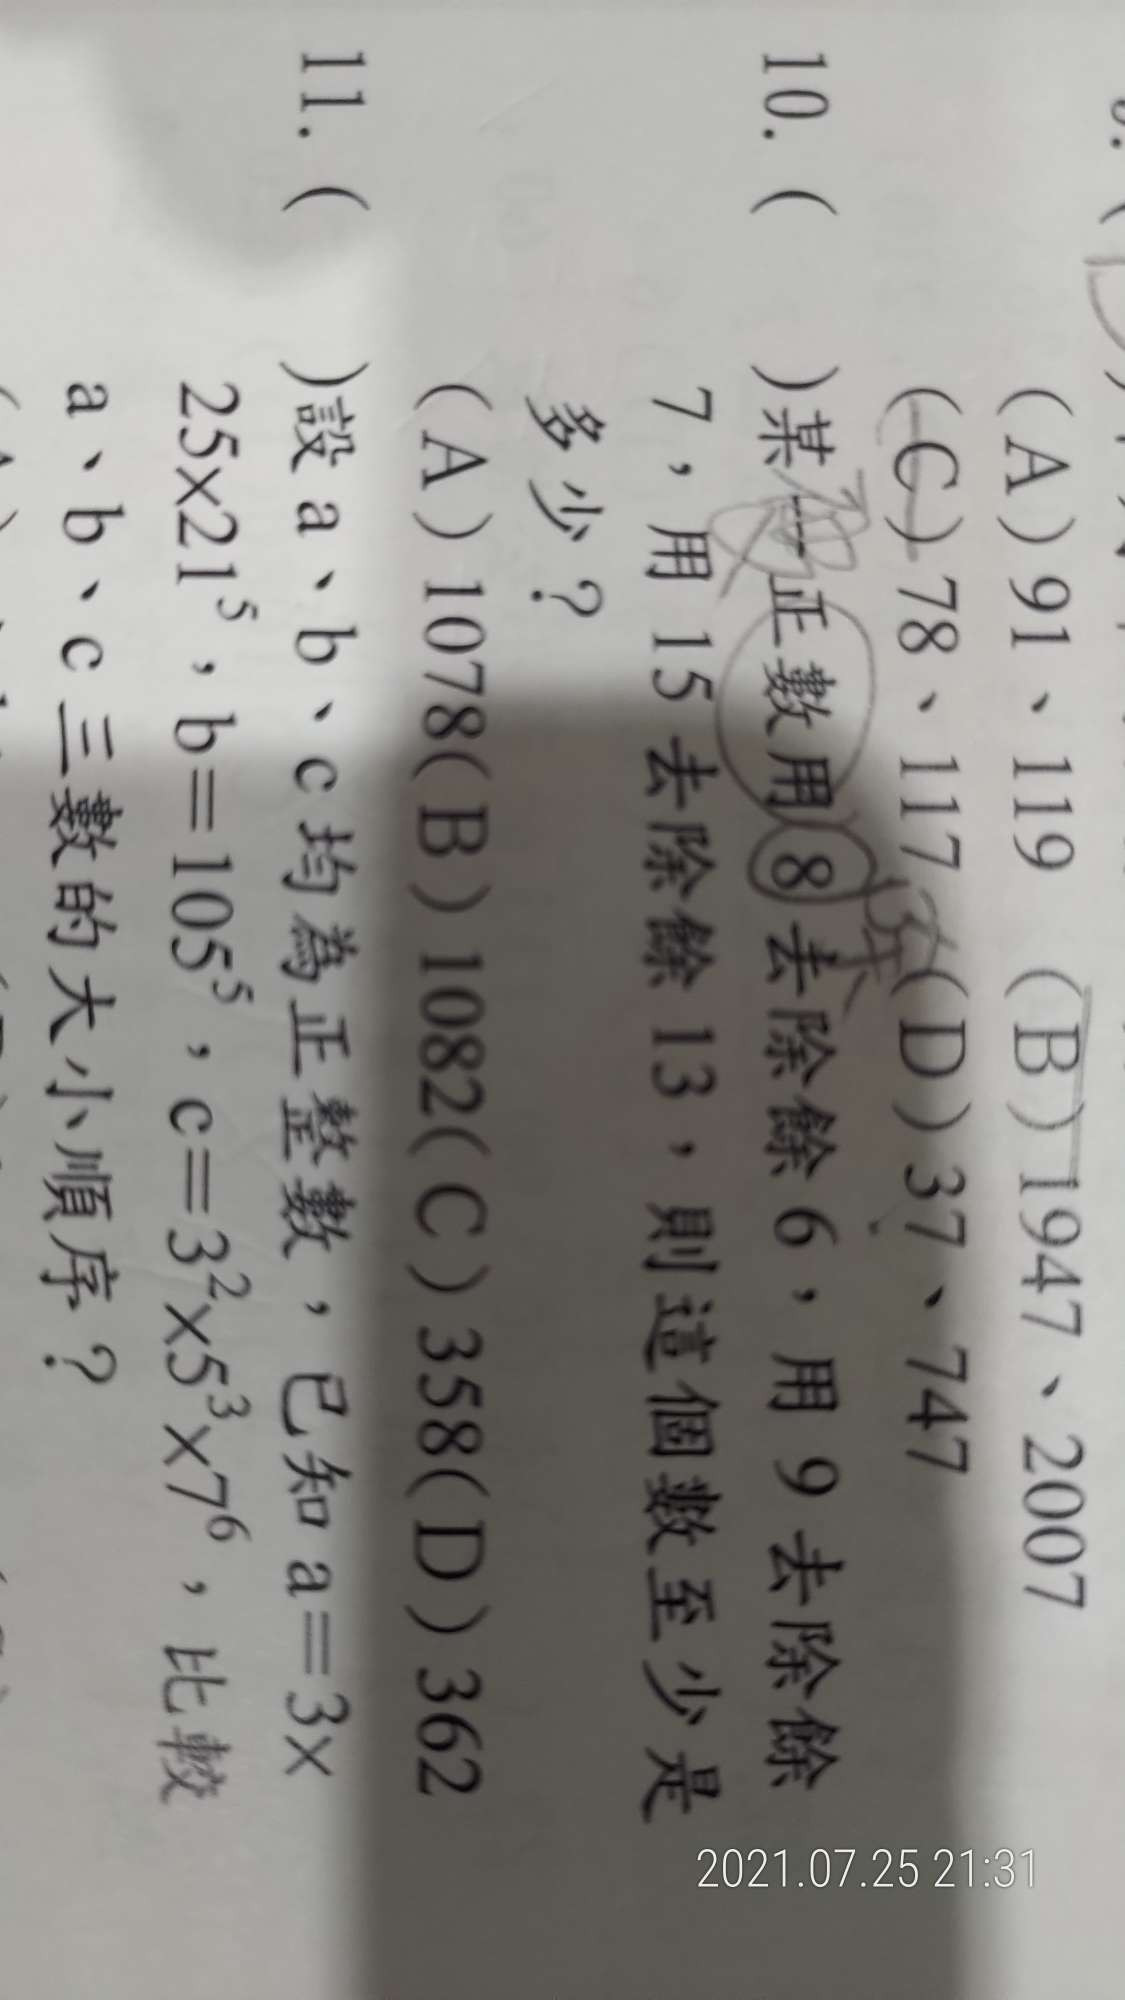 (A)91、119 (B)1947、2007
(C)78、117 (D)37、747
10.( )某一正數用8去除餘6，用9去除餘
7，用15去除餘13，則這個數至少是
多少？
(A)1078(B)1082(C)358(D)362
11.( )設a、b、c均為正整數，已知a=3×
25×21⁵，b=105⁵，c=3²×5³×7⁶，比較
a、b、c三數的大小順序？
2021.07.25 21:31